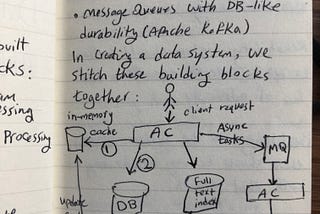 • Message Queues with DB-like
durability (Apache Kafka)
In creating a data system, we
stitch these building blocks
together:
client request
in-memory
cache
AC
Async
tasks
MQ
1
2
DB
Full
text
index
AC
update
built
cks:
am
essing
Processing